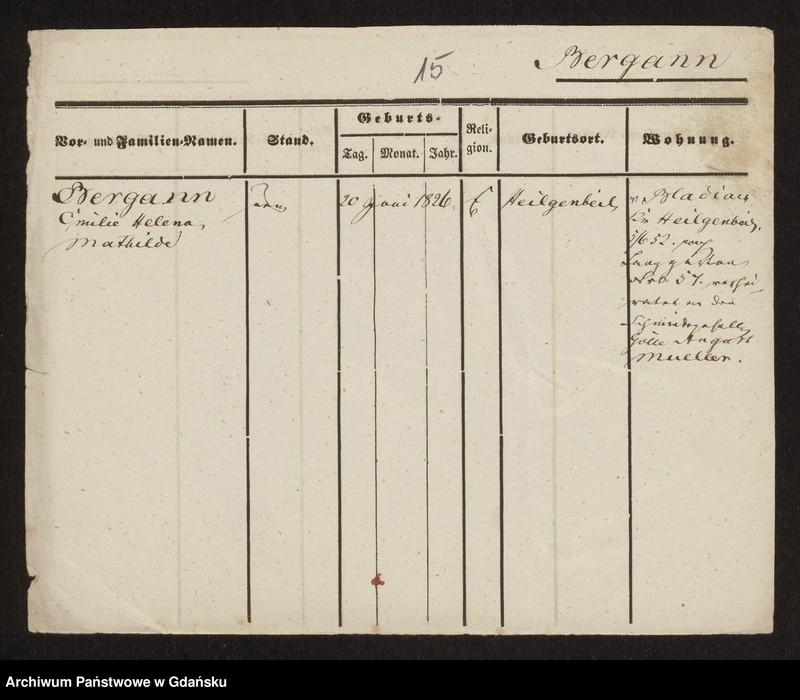 15
Bergann
Vor- und Familien-Namen.
Stand.
Geburts-
Tag. Monat. Jahr.
Reli-
gion.
Geburtsort.
Wohnung.
Bergann
Emilie Helena,
Mathilde
20 Juni 1826.
E
Heilgenbeil,
v Bladiau
Kr Heilgenbeil,
5/6 52.
Langgarten
Nro 57. verhei-
ratet an den
Schmidegeselle
August
Mueller.
Archiwum Państwowe w Gdańsku